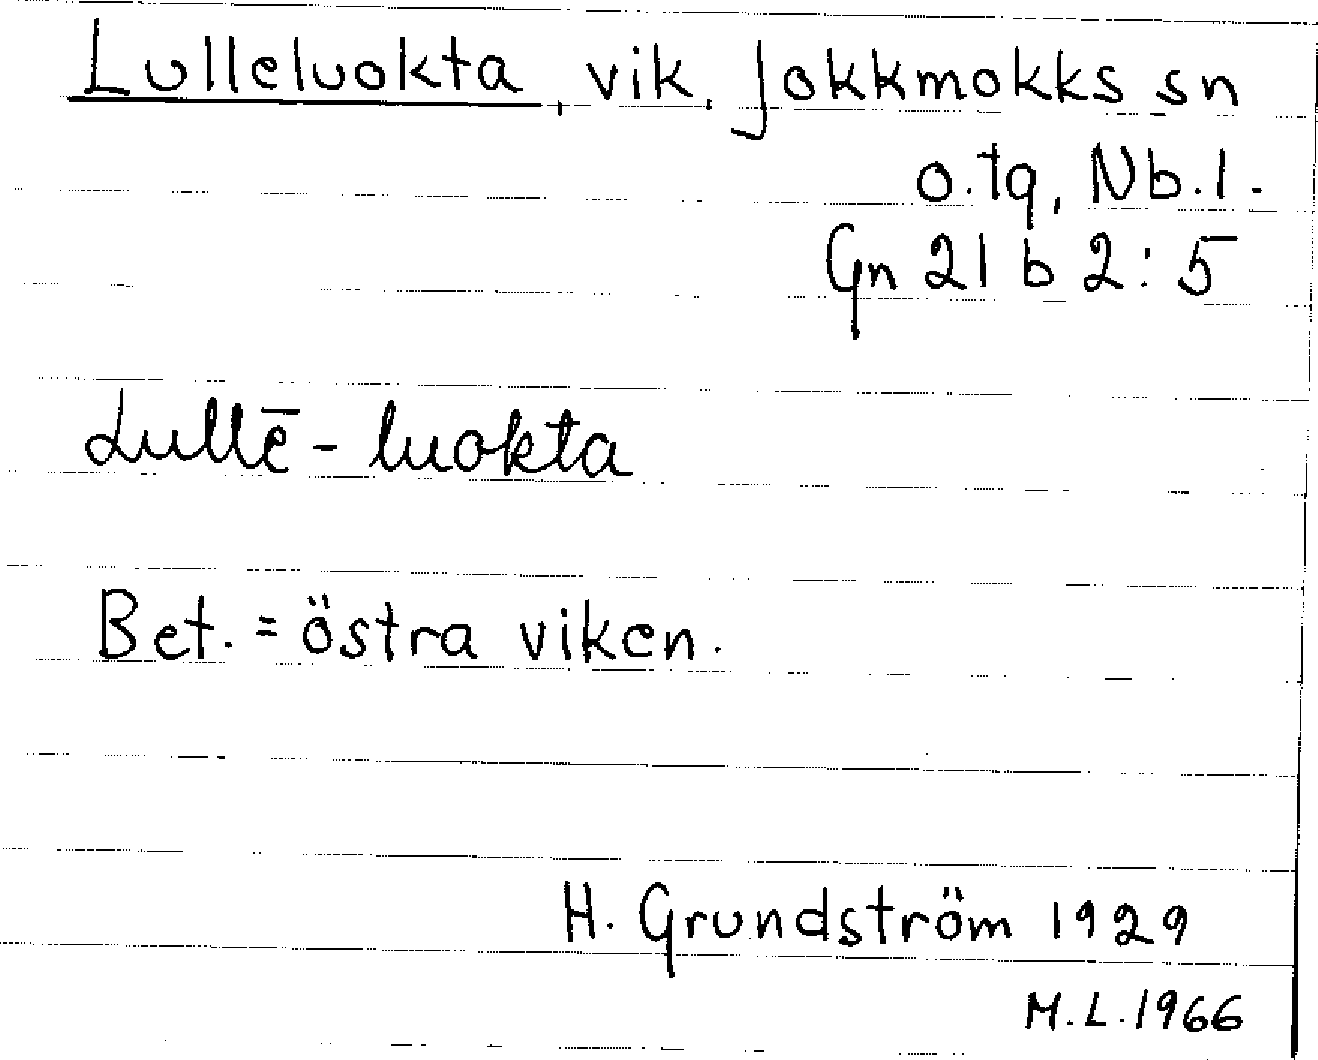 Lulleluokta, vik. Jokkmokks sn
o.tg, Nb.l.
Gn 21 b 2:5
Lullē-luokta
Bet. = östra viken.
H. Grundström 1929
M.L.1966